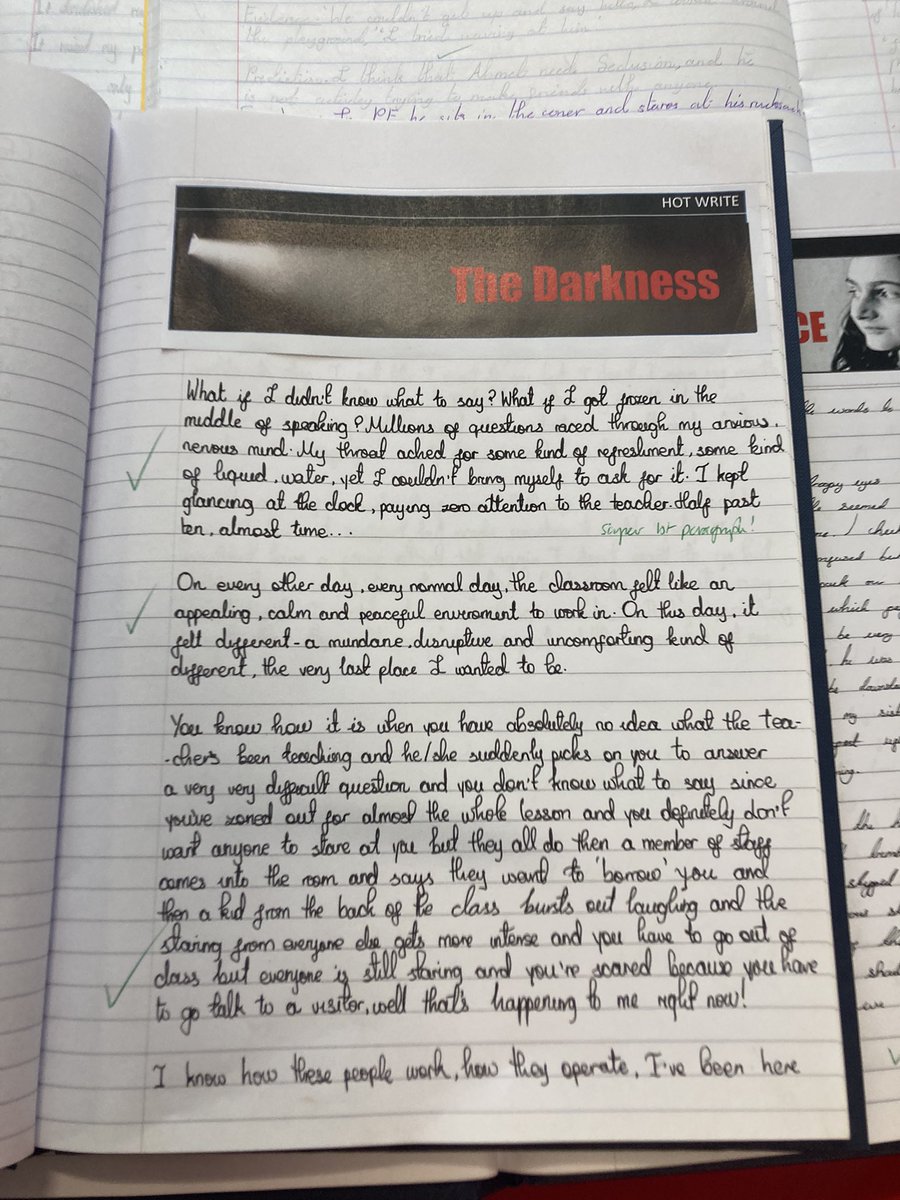 Evidence: We couldn't get up and say hello, he
the playground, I tried waving at him
Prediction: I think that Ahmet needs Seclusion, and he
is not
he sits in the corner and stares at his rucksack.
HOT WRITE
The Darkness
What if I didn't know what to say? What if I got frozen in the
middle of speaking? Millions of questions raced through my anxious,
nervous mind. My throat ached for some kind of refreshment, some kind
of liquid, water, yet I couldn't bring myself to ask for it. I kept
glancing at the clock, paying zero attention to the teacher. Half past
ten, almost time...
super 1st paragraph!
On every other day, every normal day, the classroom felt like an
appealing, calm and peaceful enviroment to work in. On this day, it
felt different - a mundane, disruptive and uncomforting kind of
different, the very last place I wanted to be.
You know how it is when you have absolutely no idea what the tea-
-chers been teaching and he/she suddenly picks on you to answer
a very very difficult question and you don't know what to say since
you've zoned out for almost the whole lesson and you definetely don't
want anyone to stare at you but they all do then a member of staff
comes into the room and says they want to 'borrow' you and
then a kid from the back of the class bursts out laughing and the
staring from everyone else gets more intense and you have to go out of
class but everyone is still staring and you're scared because you have
to go talk to a visitor, well that's happening to me right now!
I know how these people work, how they operate, I've been here
CE
words
eyes
seemed
which
be very
he was
my sist
the
slipped